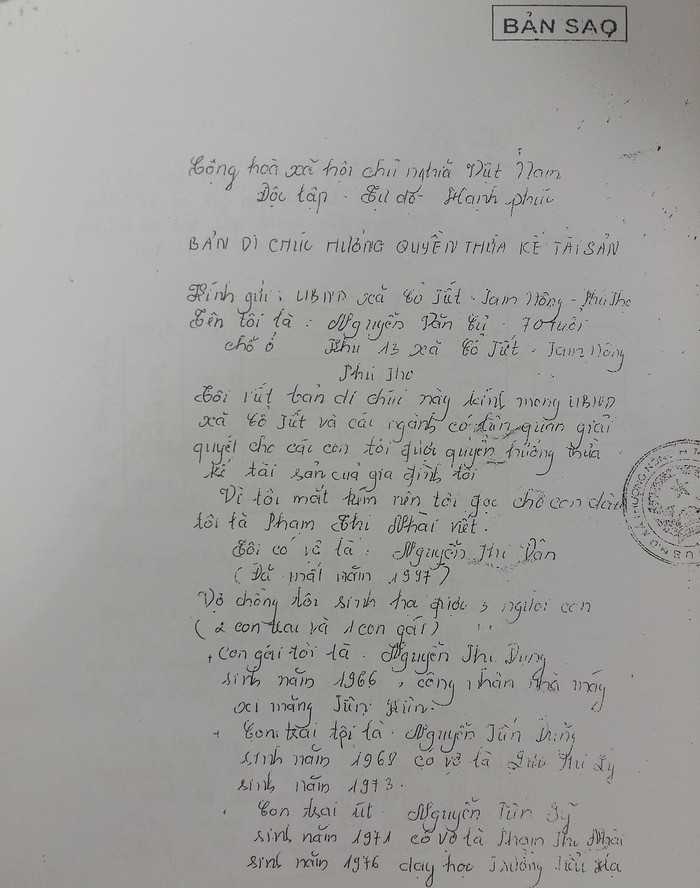 BẢN SAO
Cộng hoà xã hội chủ nghĩa Việt Nam
Độc lập - Tự do - Hạnh phúc
BẢN DI CHÚC HƯỞNG QUYỀN THỪA KẾ TÀI SẢN
Kính gửi: UBND xã Cổ Tiết - Tam Nông - Phú Thọ
Tên tôi là: Nguyễn Văn Cự - 70 tuổi
chỗ ở Khu 13 xã Cổ Tiết - Tam Nông
Phú Thọ
Tôi viết bản di chúc này kính mong UBND
xã Cổ Tiết và các ngành có liên quan giải
quyết cho các con tôi được quyền hưởng thừa
kế tài sản của gia đình tôi
Vì tôi mắt kém nên tôi đọc cho con dâu
tôi là Phạm Thị Nhài viết.
Tôi có vợ là: Nguyễn Thị Vân
(Đã mất năm 1997)
Vợ chồng tôi sinh ra được 3 người con
(2 con trai và 1 con gái)
+ Con gái tôi là. Nguyễn Thị Dung
sinh năm 1966, công nhân nhà máy
xi măng Tiên Kiên.
+ Con trai tôi là. Nguyễn Tiến Dũng
sinh năm 1969 có vợ là Lưu Thị Lý
sinh năm 1973.
+ Con trai út Nguyễn Tiến Sỹ
sinh năm 1971 có vợ là Phạm Thị Nhài
sinh năm 1976 dạy học Trường Tiểu